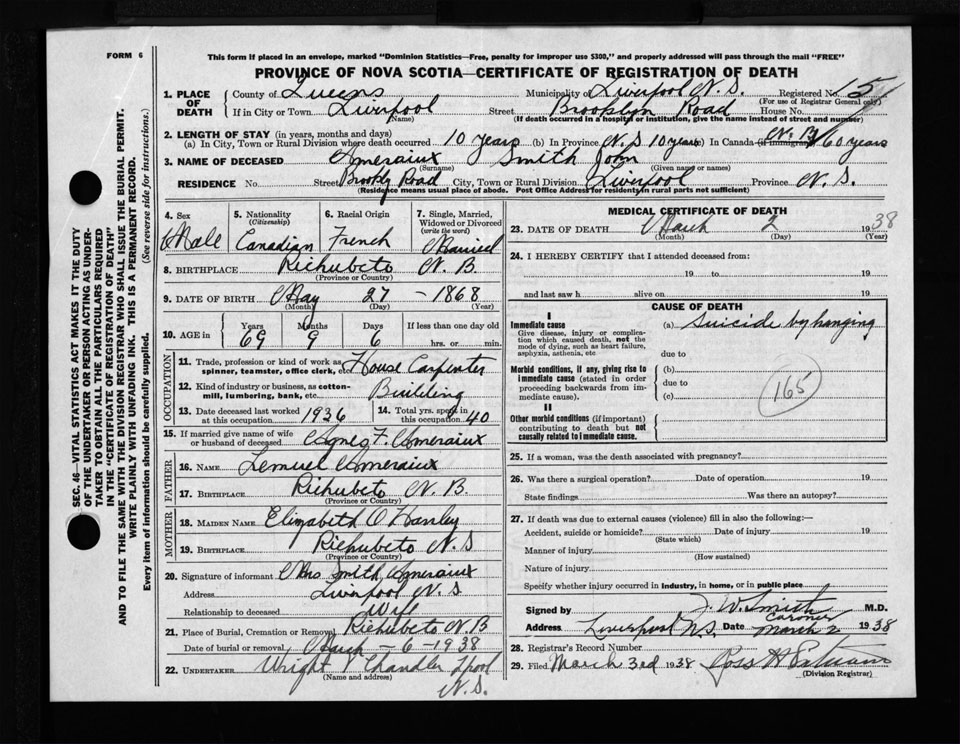 FORM 6
This form if placed in an envelope, marked "Dominion Statistics—Free, penalty for improper use $300," and properly addressed will pass through the mail "FREE"
PROVINCE OF NOVA SCOTIA—CERTIFICATE OF REGISTRATION OF DEATH
1. PLACE OF DEATH County of Queens Municipality of Liverpool N. S. Registered No.
(For use of Registrar General only)
If in City or Town Liverpool Street Brooklyn Road House No.
(Name) (If death occurred in a hospital or institution, give the name instead of street and number)
2. LENGTH OF STAY (in years, months and days) N. B.
(a) In City, Town or Rural Division where death occurred 10 years (b) In Province N. S 10 years (c) In Canada (if immigrant) 60 years
3. NAME OF DECEASED Ameraiux Smith John
(Surname) (Given name or names)
RESIDENCE No. Street Brookly Road City, Town or Rural Division Liverpool Province N. S.
(Residence means usual place of abode. Post Office Address for residents in rural parts not sufficient)
4. Sex Male
5. Nationality (Citizenship) Canadian
6. Racial Origin French
7. Single, Married, Widowed or Divorced (write the word) Married
8. BIRTHPLACE Richubeto N. B.
(Province or Country)
9. DATE OF BIRTH May 27 - 1868
(Month) (Day) (Year)
10. AGE in Years Months Days If less than one day old
69 9 6 hrs. or min.
OCCUPATION
11. Trade, profession or kind of work as spinner, teamster, office clerk, etc. House Carpenter
12. Kind of industry or business, as cotton-mill, lumbering, bank, etc. Building
13. Date deceased last worked at this occupation 1936
14. Total yrs. spent in this occupation 40
15. If married give name of wife or husband of deceased Agnes F. Ameraiux
FATHER
16. NAME Lemuel Ameraiux
17. BIRTHPLACE Richubeto N. B.
(Province or Country)
MOTHER
18. MAIDEN NAME Elizabeth O Hanley
19. BIRTHPLACE Richubeto N. S
(Province or Country)
20. Signature of informant Mrs Smith Ameraiux
Address Liverpool N. S.
Relationship to deceased Wife
21. Place of Burial, Cremation or Removal Richubeto N. B
Date of burial or removal March - 6 - 1938
22. UNDERTAKER Wright & Chandler Lpool
(Name and address) N. S.
MEDICAL CERTIFICATE OF DEATH
23. DATE OF DEATH March 2 1938
(Month) (Day) (Year)
24. I HEREBY CERTIFY that I attended deceased from:
19 to 19
and last saw h alive on 19
CAUSE OF DEATH
I
Immediate cause (a) Suicide by hanging
Give disease, injury or complication which caused death, not the mode of dying, such as heart failure, asphyxia, asthenia, etc
due to
Morbid conditions, if any, giving rise to immediate cause (stated in order proceeding backwards from immediate cause).
(b)
due to
(c)
165
II
Other morbid conditions (if important) contributing to death but not causally related to immediate cause.
25. If a woman, was the death associated with pregnancy?
26. Was there a surgical operation? Date of operation 19
State findings Was there an autopsy?
27. If death was due to external causes (violence) fill in also the following:—
Accident, suicide or homicide? Date of injury 19
(State which)
Manner of injury
(How sustained)
Nature of injury
Specify whether injury occurred in industry, in home, or in public place
Signed by J. W. Smith M.D.
Coroner
Address Liverpool N.S. Date March 2 1938
28. Registrar's Record Number
29. Filed March 3rd 1938
(Division Registrar)
SEC. 46—VITAL STATISTICS ACT MAKES IT THE DUTY
OF THE UNDERTAKER OR PERSON ACTING AS UNDER-
TAKER TO OBTAIN ALL THE PARTICULARS REQUIRED
IN THE "CERTIFICATE OF REGISTRATION OF DEATH"
AND TO FILE THE SAME WITH THE DIVISION REGISTRAR WHO SHALL ISSUE THE BURIAL PERMIT.
WRITE PLAINLY WITH UNFADING INK. THIS IS A PERMANENT RECORD.
Every item of information should be carefully supplied. (See reverse side for instructions.)